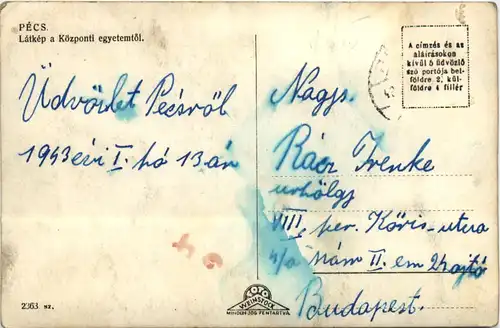 PÉCS.
Látkép a Központi egyetemtől.
A címzés és az
aláirásokon
kívül 5 üdvözlő
szó portója bel-
földre 2, kül-
földre 4 fillér
Üdvözlet Pécsről
1943 évi I. hó 13 án
Nagys.
Rácz Irenke
urhölgy
VIII. ker. Kőris-utca
4/a szám II. em 2h ajtó
Budapest.
2363 sz.
WEINSTOCK
MINDEN JOG FENTARTVA